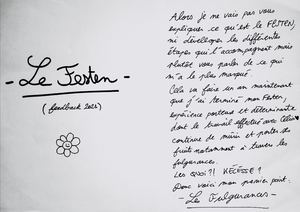 - Le Festen -
(feedback 2022)
Alors je ne vais pas vous
expliquer ce qu'est le FESTEN,
ni développer les différentes
étapes qui l'accompagnent mais
plutôt vous parler de ce qui
m'a le plus marqué.
Cela va faire un an maintenant
que j'ai terminé mon Festen,
expérience porteuse et déterminante
dont le travail effectué avec
continue de mûrir et porter des
fruits notamment à travers les
fulgurances.
Les QUOI ?! KÉCÉSSE ?
Donc voici mon premier point :
- Les Fulgurances -